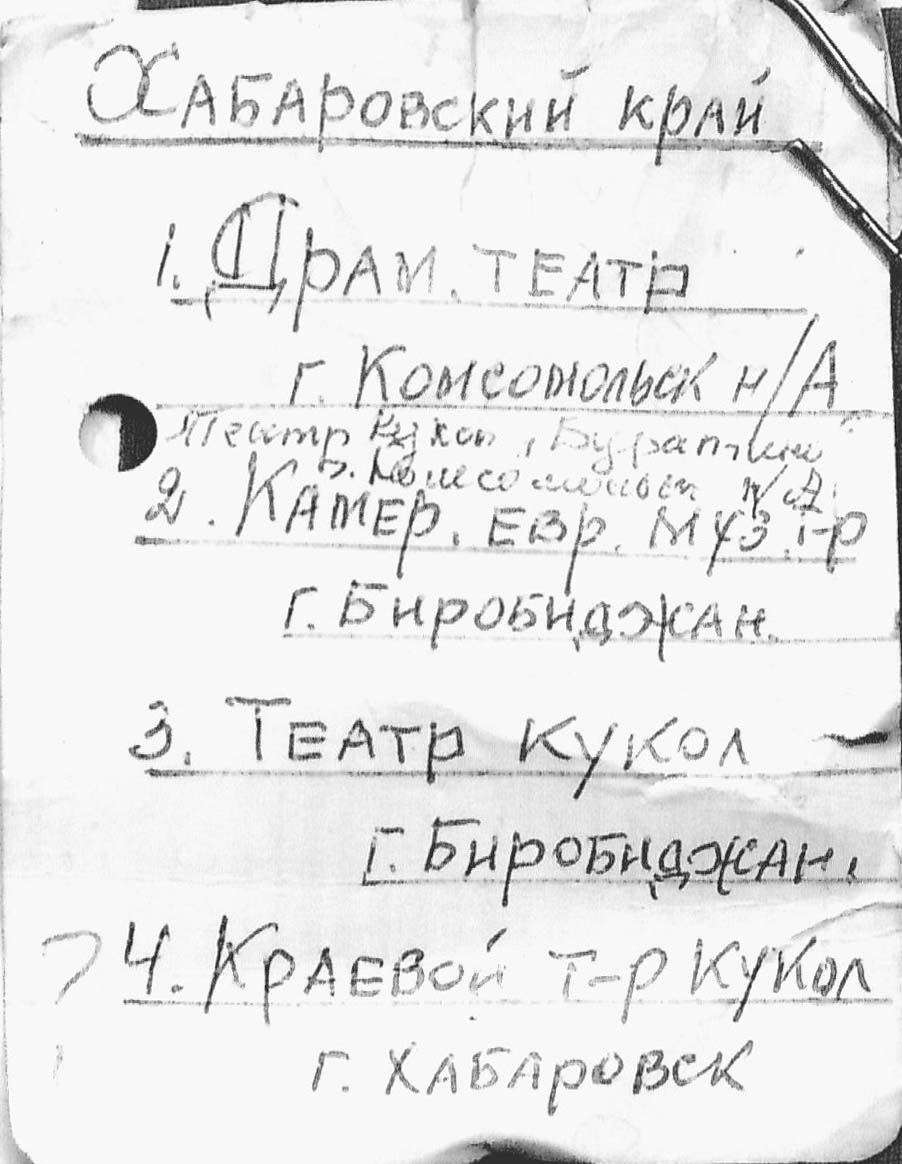 Хабаровский край
1. Драм. театр
г. Комсомольск н/А
Театр кукол „Буратино"
г. Комсомольск н/А.
2. Камер. евр. муз. т-р
г. Биробиджан.
3. Театр кукол
г. Биробиджан.
4. Краевой т-р кукол
г. Хабаровск